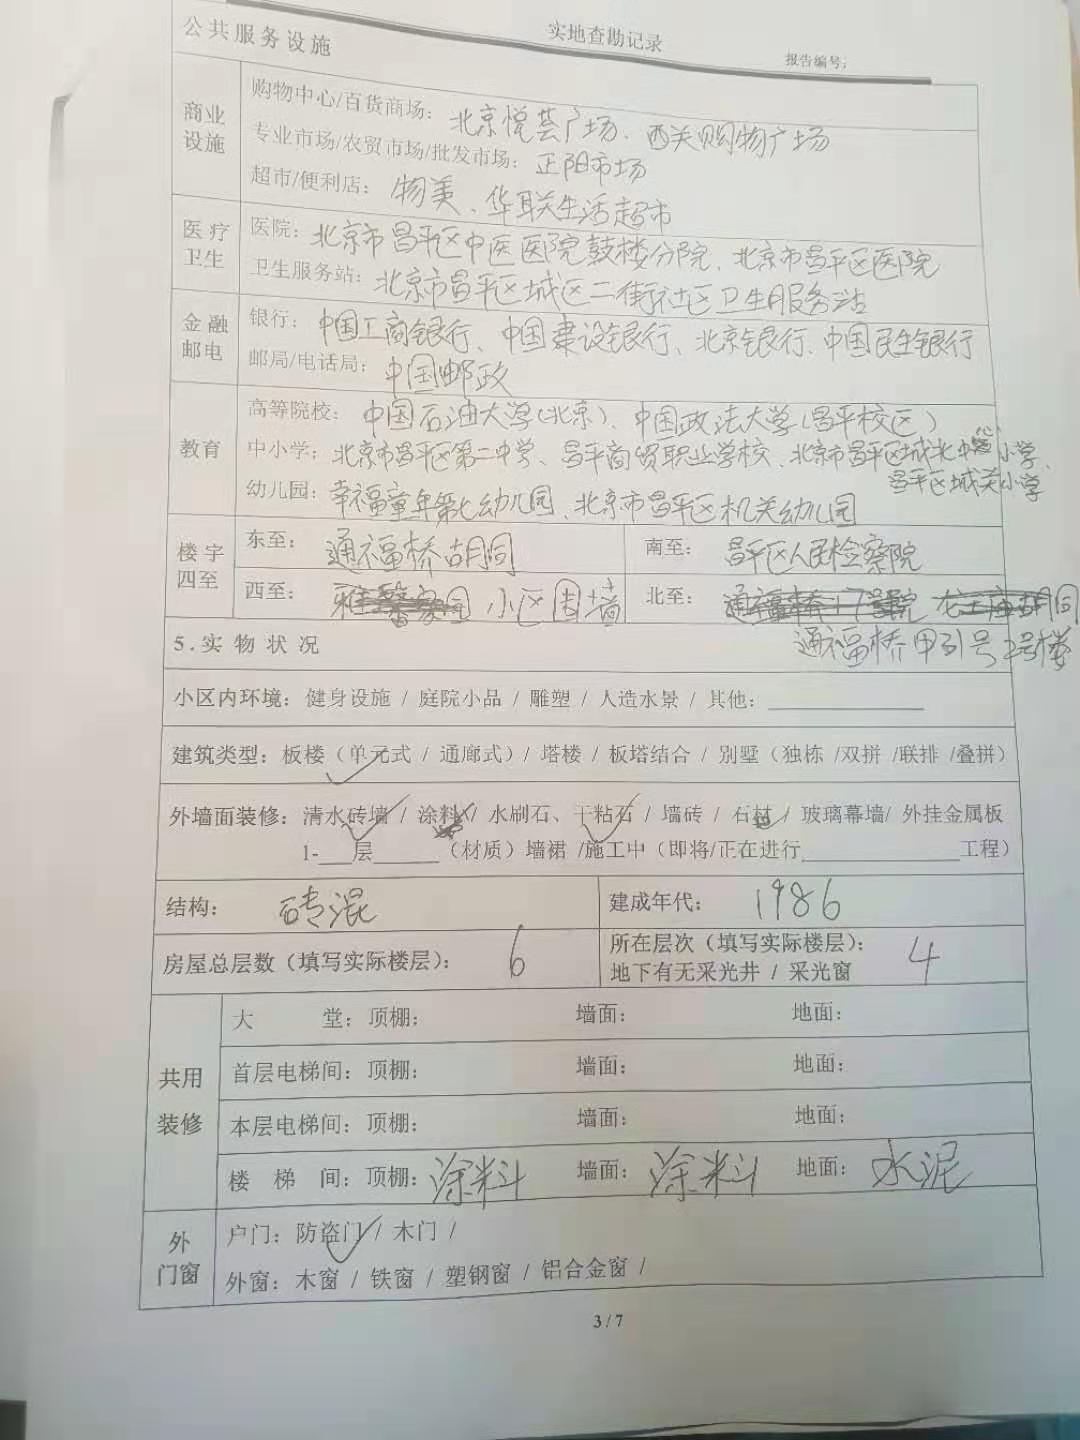 实地查勘记录
报告编号:
公共服务设施
商业设施
购物中心/百货商场: 北京悦荟广场、西关购物广场
专业市场/农贸市场/批发市场: 正阳市场
超市/便利店: 物美、华联生活超市
医疗卫生
医院: 北京市昌平区中医医院鼓楼分院、北京市昌平区医院
卫生服务站: 北京市昌平区城区二街社区卫生服务站
金融邮电
银行: 中国工商银行、中国建设银行、北京银行、中国民生银行
邮局/电话局: 中国邮政
教育
高等院校: 中国石油大学(北京)、中国政法大学(昌平校区)
中小学: 北京市昌平区第二中学、昌平商贸职业学校、北京市昌平区城北中心小学、
昌平区城关小学
幼儿园: 幸福童年第七幼儿园、北京市昌平区机关幼儿园
楼宇四至
东至: 通福桥胡同
南至: 昌平区人民检察院
西至: 小区围墙
北至:
通福桥甲 号2号楼
5.实物状况
小区内环境: 健身设施 / 庭院小品 / 雕塑 / 人造水景 / 其他:
建筑类型: 板楼(单元式 / 通廊式)/ 塔楼 / 板塔结合 / 别墅(独栋 /双拼 /联排 /叠拼)
外墙面装修: 清水砖墙 / 涂料 / 水刷石、干粘石 / 墙砖 / 石材 / 玻璃幕墙/ 外挂金属板
1-___层______(材质)墙裙 /施工中(即将/正在进行______________工程)
结构: 砖混
建成年代: 1986
房屋总层数(填写实际楼层): 6
所在层次(填写实际楼层): 4
地下有无采光井 / 采光窗
共用装修
大堂: 顶棚: 墙面: 地面:
首层电梯间: 顶棚: 墙面: 地面:
本层电梯间: 顶棚: 墙面: 地面:
楼梯间: 顶棚: 涂料 墙面: 涂料 地面: 水泥
外门窗
户门: 防盗门 / 木门 /
外窗: 木窗 / 铁窗 / 塑钢窗 / 铝合金窗 /
3 / 7